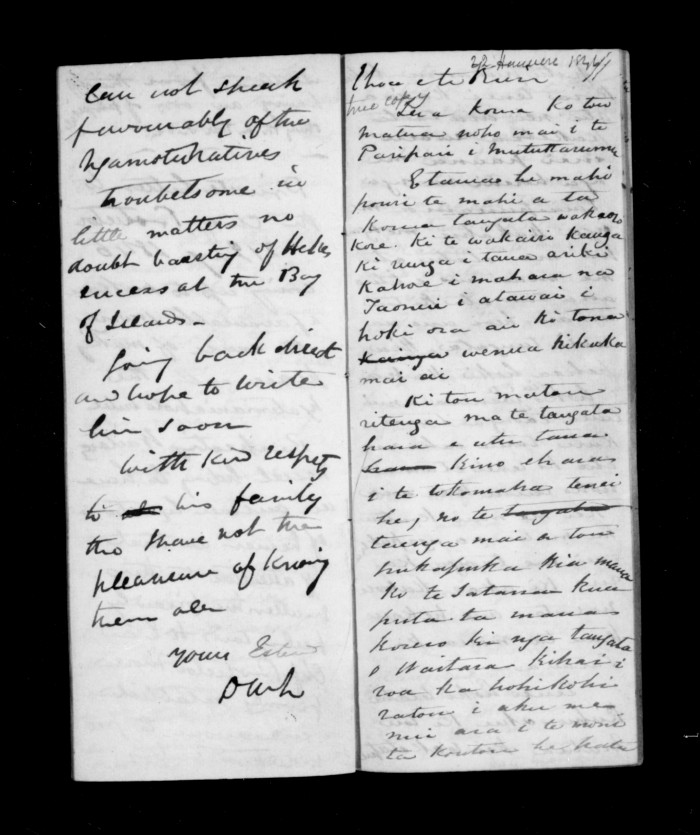 can not speak
favourably of the
Ngamotu natives
troubelsome in
little matters no
doubt boasting of Hekes
sucess at the Bay
of Islands -
Going back direct
and hope to write
him soon
with kind respects
to his family
tho I have not the
pleasure of knowing
them all
yours
DMcL
22 Hanuere 1846
E hoa e te
true copy
Tena koe ko tou
matua noho mai i te
Paripari i
E tama he mahi
pouri te mahi a ta
korua tangata wakaaro
kore. Ki te wakairi kanga
ki runga i tana ariki
Kahore i mahara na
Taonui i atawai i
hoki ora ai ki tona
kainga wenua kikaka
mai ai
Ki tou matou
ritenga ma te tangata
hara e utu tana
kino ehara
i te tokomaha tenei
he, no te tangata
taenga mai o tou
pukapuka kia maua
ko te Satana kua
puta ta maua
korero ki nga tangata
o Waitara kihai i
roa ka kohikohi
ratou i aku mea
nui ara i te moni
ta koutou he